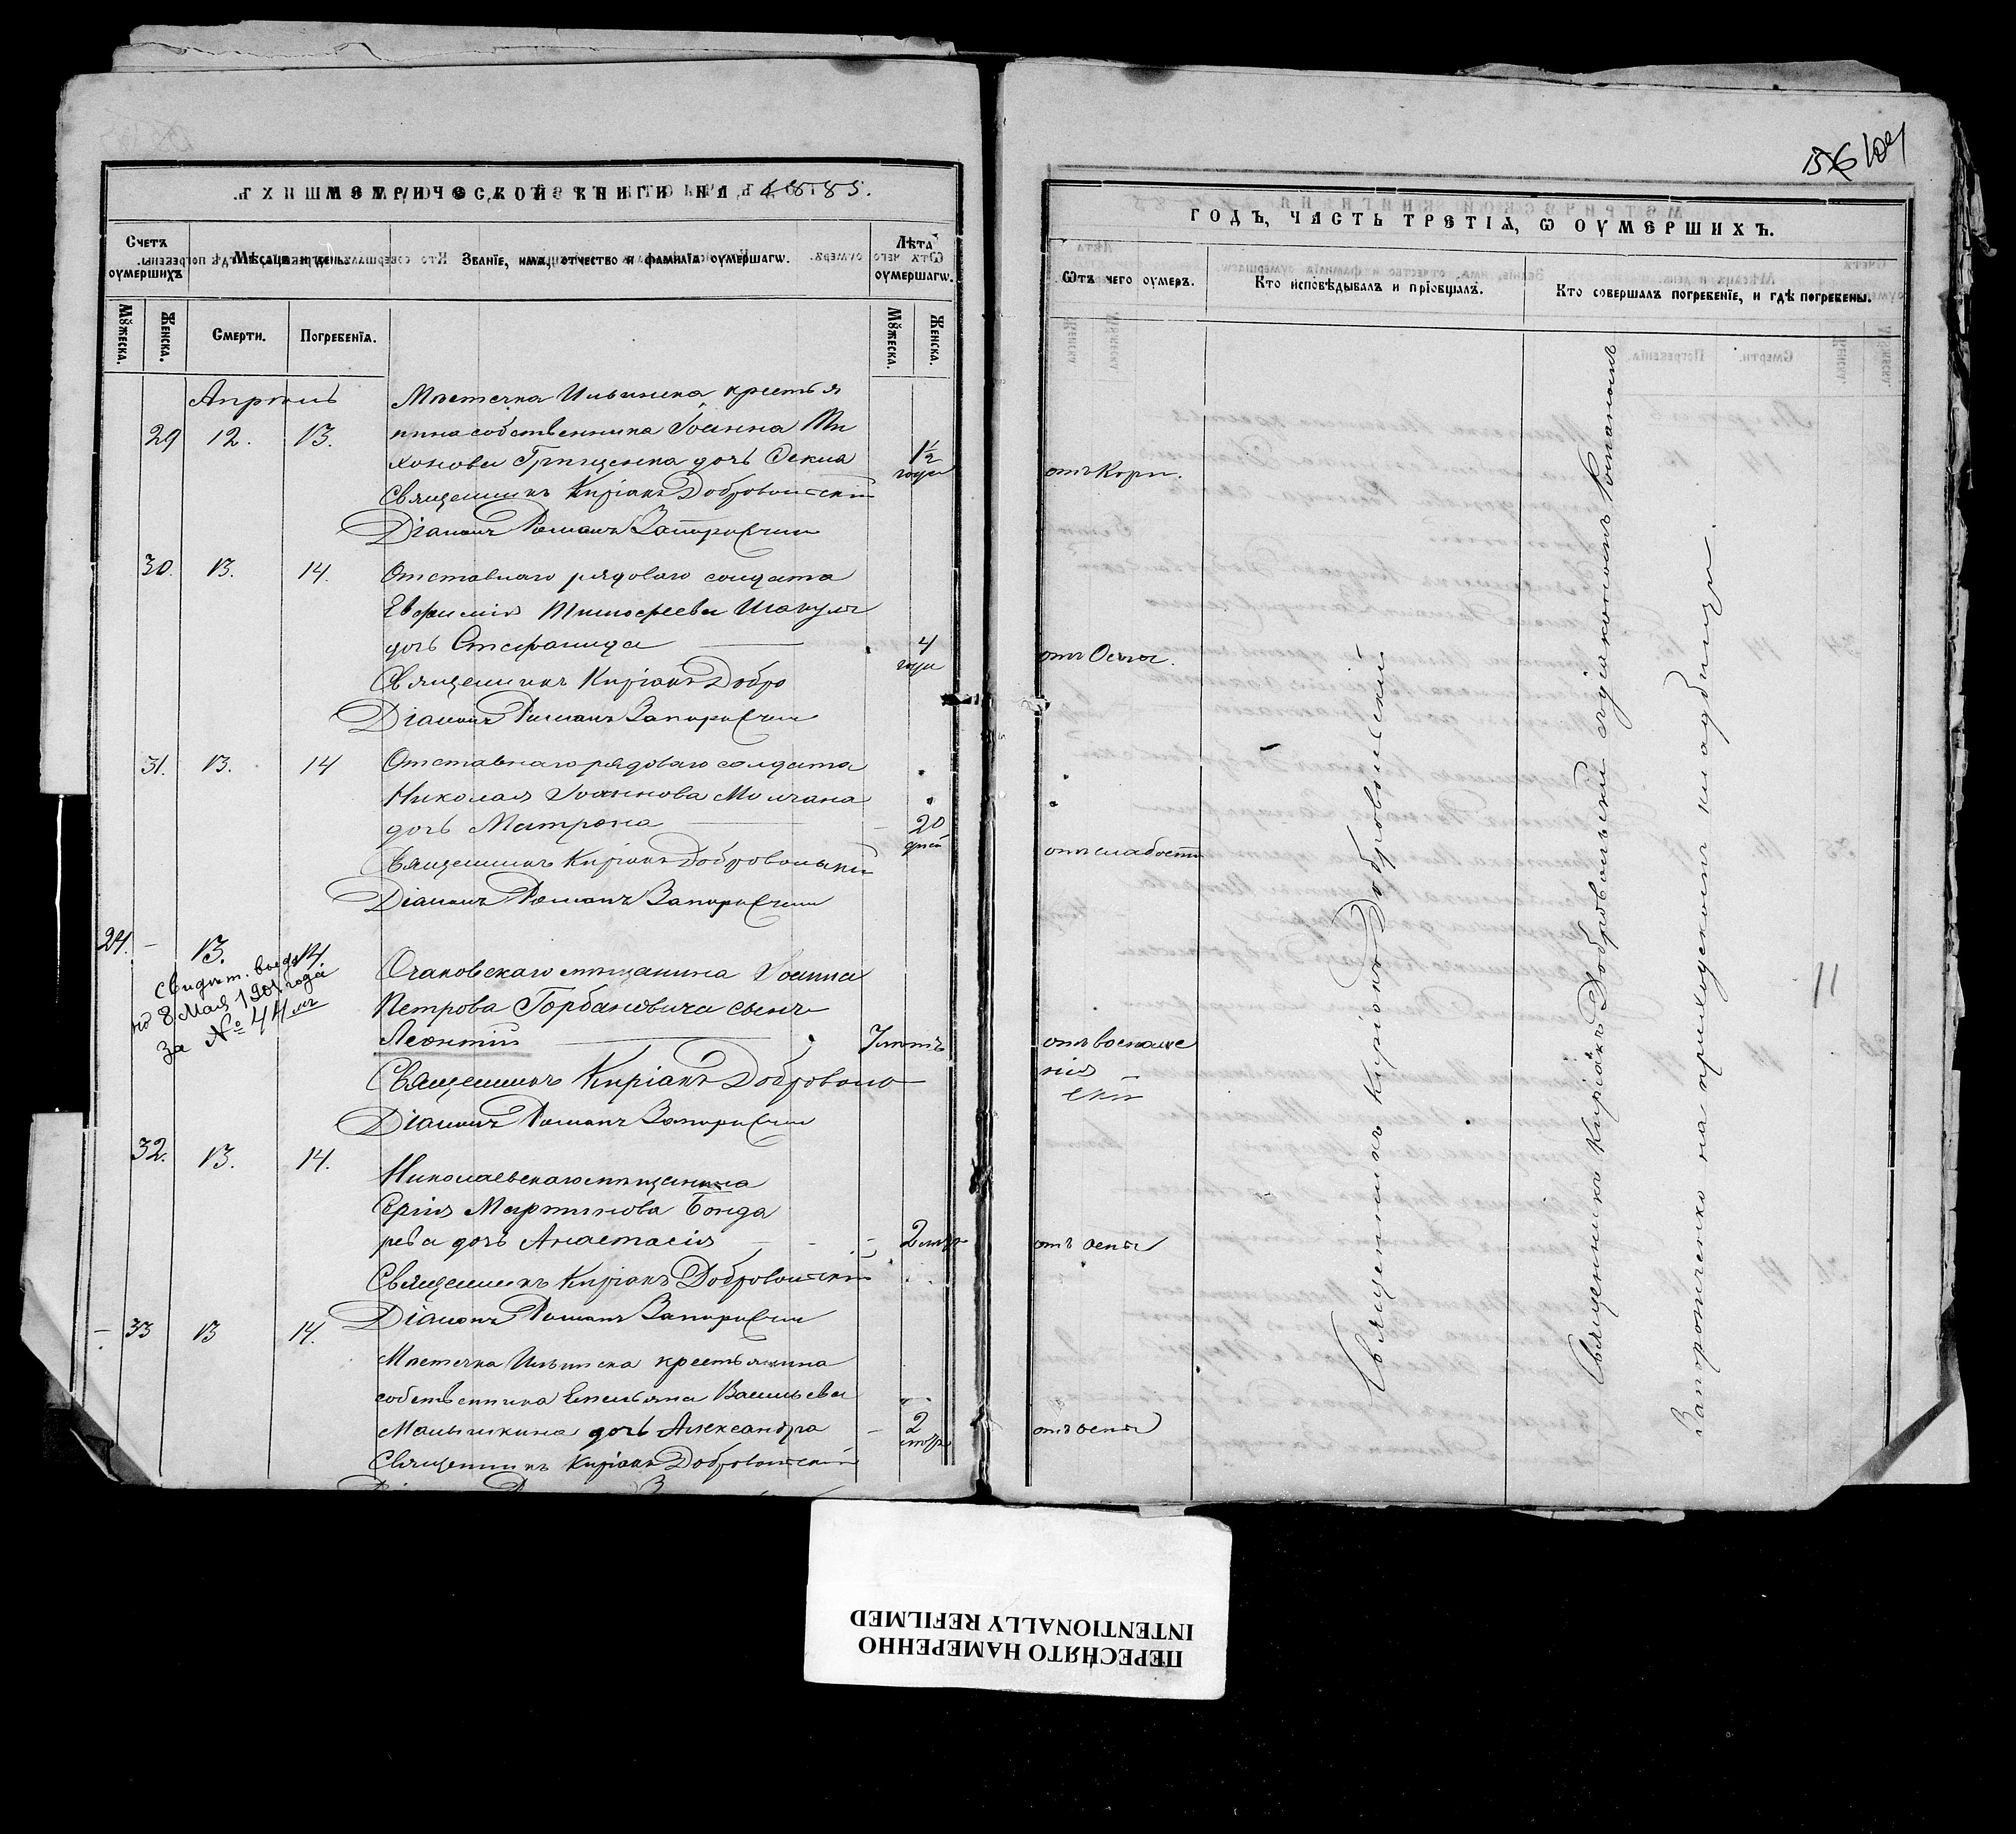 МЕТРИЧЕСКОЙ КНИГИ НА 1885.
Счетъ оумершихъ
Мѣсяцъ и день
Званїе, имя, отчество и фамилїа оумершагѡ.
Лѣта оумершагѡ.
Мꙋжеска.
Женска.
Смерти.
Погребенїа.
Мꙋжеска.
Женска.
Апрѣль
Мѣстечка Ильинска крестья
29 12. 13. нина собственника Іоанна Ти
хонова Грищенка дочь Оекла 1½ года
Священникъ Киріакъ Добровольскій
Діаконъ Романъ Запорожченко
30. 13. 14. Отставнаго рядоваго солдата
Евфимія Тимофеева Шакуля
дочь Стефанида 4 года
Священникъ Киріакъ Добро
Діаконъ Романъ Запорожченко
31. 13. 14 Отставнаго рядоваго солдата
Николая Іоаннова Молчана
дочь Матрона 20 дней
Священникъ Киріакъ Добровольскій
Діаконъ Романъ Запорожченко
24. - 13. 14
Свидѣт. выд.
но 8 Мая 1901 года
за № 44 мъ
Очаковскаго мѣщанина Іоанна
Петрова Горбановича сынъ
Леонтій 7 лѣтъ
Священникъ Киріакъ Доброволь
Діаконъ Романъ Запорожченко
32. 13. 14. Николаевскаго мѣщанина
Сергія Мартинова Бонда
рева дочь Анастасія 2 лѣтъ
Священникъ Киріакъ Добровольскій
Діаконъ Романъ Запорожченко
- 33 13 14.
Мѣстечка Ильинска крестьянина
собственника Емельяна Васильева
Малышкина дочь Александра 2 лѣтъ
Священникъ Киріакъ Добровольскій
156 109
ГОДЪ, ЧАСТЬ ТРЕТІѦ, Ѡ ОУМЕРШИХЪ.
Ѿтъ чего оумеръ.
Кто исповѣдывалъ и прїобщалъ.
Кто совершалъ погребенїе, и гдѣ погребены.
отъ Кори.
отъ Оспы.
отъ слабости
отъ воспале
нія
скій
отъ оспы
отъ оспы
Священникъ Киріакъ Добровольскій
Священникъ Киріакъ Добровольскій съ діакономъ Романомъ
Запорожченко на приходскомъ кладбищѣ.
11
ПЕРЕСНЯТО НАМЕРЕННО
INTENTIONALLY REFILMED